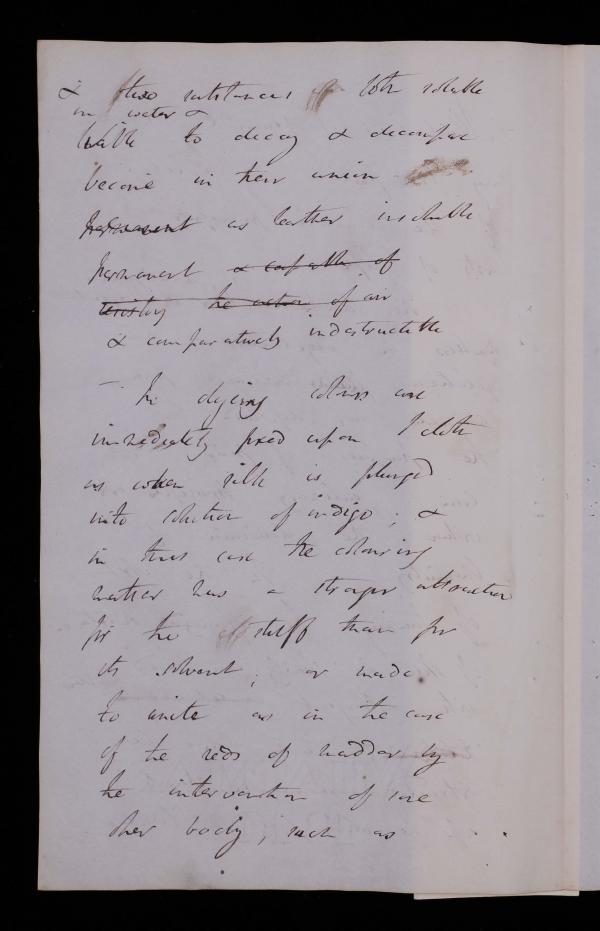 & two substances both soluble
in water &
liable to decay & decompose
become in their union
permanent as leather insoluble
permanent & capable of
resisting the action of air
& comparatively indestructible
— In dying colours are
immediately fixed upon cloth
as when silk is plunged
into solution of indigo; &
in this case the colouring
matter has a stronger attraction
for the stuff than for
its solvent; or made
to unite as in the case
of the reds of madder by
the intervention of some
other body, such as